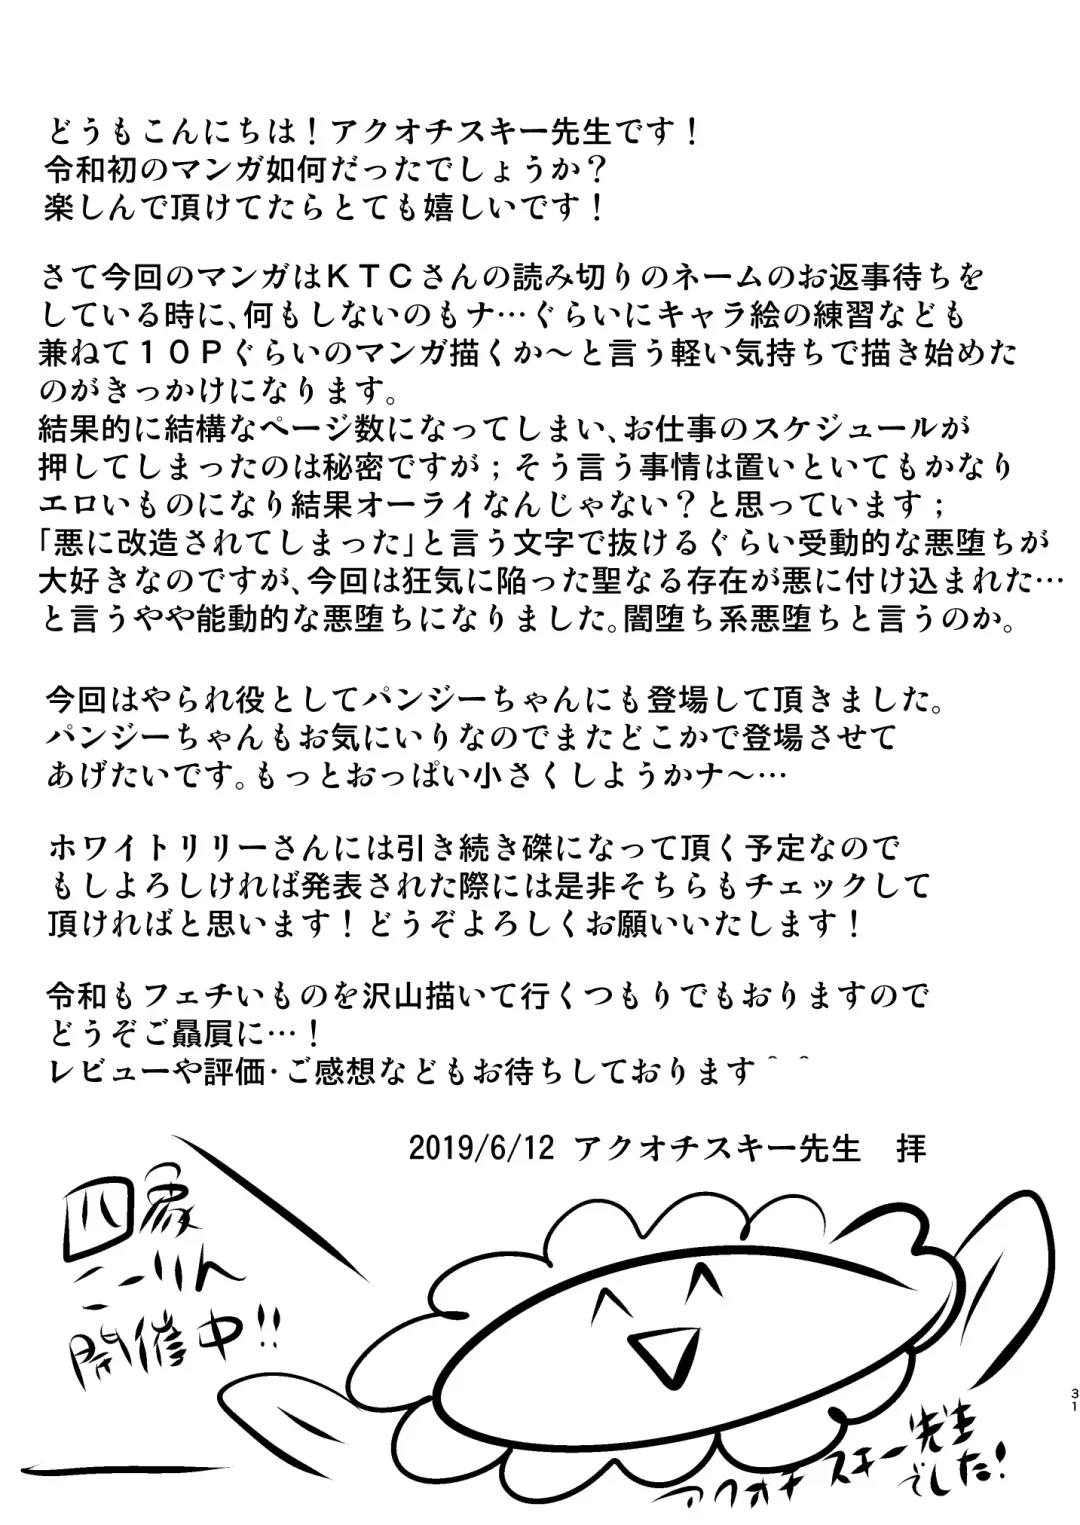 どうもこんにちは！アクオチスキー先生です！
令和初のマンガ如何だったでしょうか？
楽しんで頂けてたらとても嬉しいです！
さて今回のマンガはＫＴＣさんの読み切りのネームのお返事待ちを
している時に、何もしないのもナ…ぐらいにキャラ絵の練習なども
兼ねて１０Ｐぐらいのマンガ描くか～と言う軽い気持ちで描き始めた
のがきっかけになります。
結果的に結構なページ数になってしまい、お仕事のスケジュールが
押してしまったのは秘密ですが；そう言う事情は置いといてもかなり
エロいものになり結果オーライなんじゃない？と思っています；
「悪に改造されてしまった」と言う文字で抜けるぐらい受動的な悪堕ちが
大好きなのですが、今回は狂気に陥った聖なる存在が悪に付け込まれた…
と言うやや能動的な悪堕ちになりました。闇堕ち系悪堕ちと言うのか。
今回はやられ役としてパンジーちゃんにも登場して頂きました。
パンジーちゃんもお気にいりなのでまたどこかで登場させて
あげたいです。もっとおっぱい小さくしようかナ～…
ホワイトリリーさんには引き続き磔になって頂く予定なので
もしよろしければ発表された際には是非そちらもチェックして
頂ければと思います！どうぞよろしくお願いいたします！
令和もフェチいものを沢山描いて行くつもりでもおりますので
どうぞご贔屓に…！
レビューや評価・ご感想などもお待ちしております＾＾
2019/6/12 アクオチスキー先生　拝
開催中!!
アクオチスキー先生
でした！
31